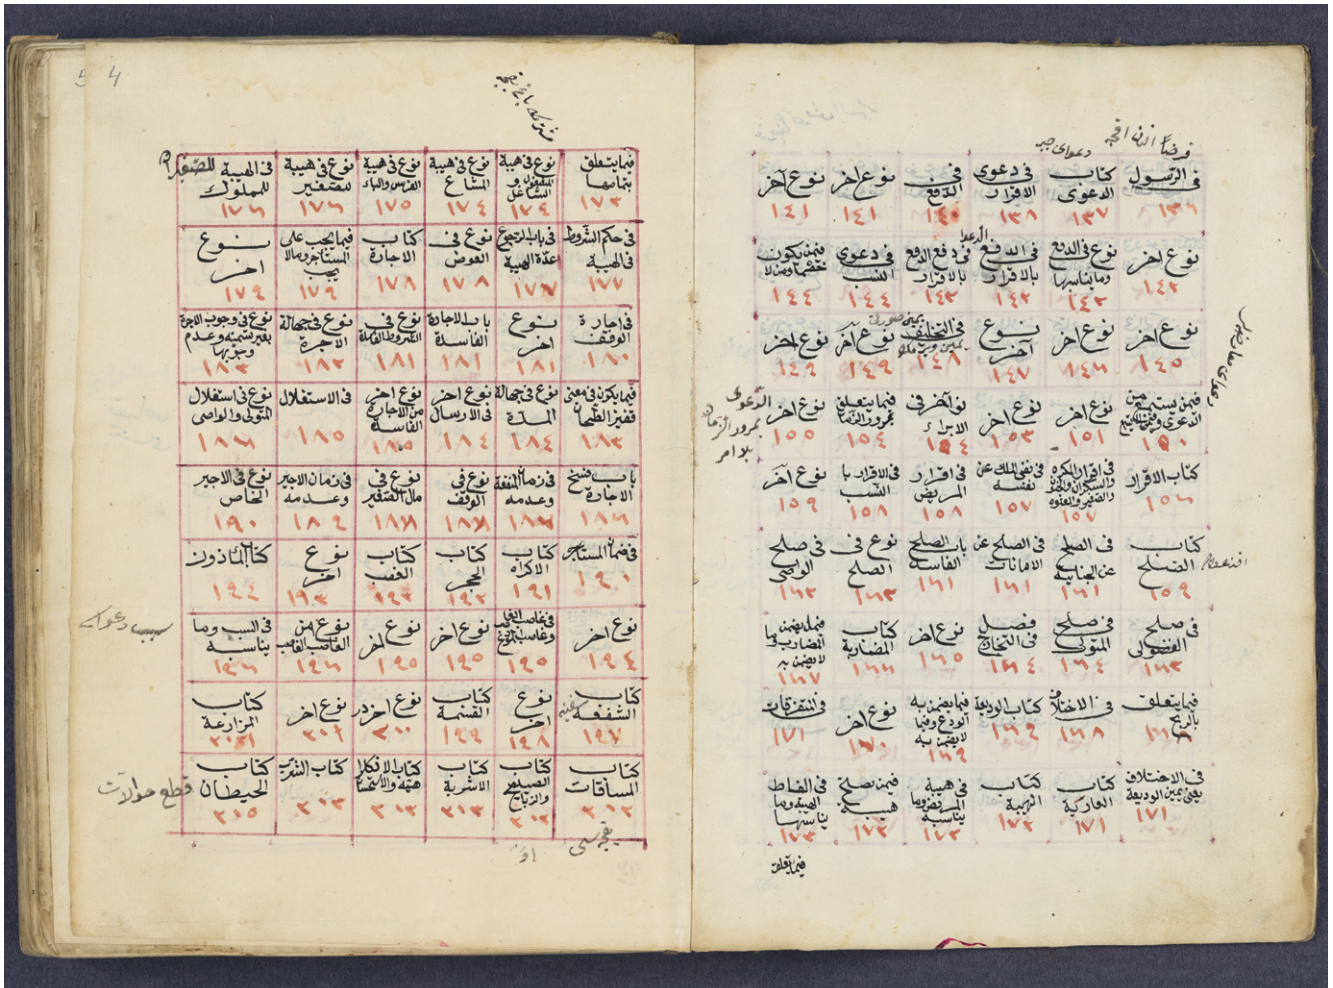 فى الرسول
١٣٦
كتاب الدعوى
١٣٧
فى دعوى الاقرار
١٣٨
فى الدفع
١٤٠
نوع آخر
١٤١
نوع آخر
١٤١
نوع آخر
١٤٢
نوع فى الدفع وما يناسبها
١٤٢
فى الدفع بالاقرار
١٤٢
فى دفع الدفع بالاقرار
١٤٣
فى دعوى النسب
١٤٤
فيمن يكون خصما ومن لا
١٤٤
نوع آخر
١٤٥
نوع آخر
١٤٦
نوع آخر
١٤٧
فى التحليف
١٤٨
نوع آخر
١٤٩
نوع آخر
١٤٩
نوع آخر
١٥١
نوع آخر
١٥٣
نوع آخر فى الابراء
١٥٤
فيما يتعلق بمرور الزمان
١٥٤
نوع آخر
١٥٥
الدعوى بمرور الزمان بلا امر
كتاب الاقرار
١٥٦
١٥٧
فى نفى الملك عن نفسه
١٥٧
فى اقرار المريض
١٥٨
فى الاقرار بالنسب
١٥٨
نوع آخر
١٥٩
كتاب الصلح
١٥٩
فى الصلح عن الجناية
١٦١
فى الصلح عن الامانات
١٦١
باب الصلح الفاسد
١٦١
نوع فى الصلح
١٦٣
فى صلح الوصى
١٦٣
فى صلح الفضولى
١٦٣
فى صلح المتولى
١٦٤
فصل فى التخارج
١٦٤
نوع آخر
١٦٥
كتاب المضاربة
١٦٦
فيما يضمن المضارب وما لا يضمن به
١٦٧
فيما يتعلق بالربح
١٦٨
فى الاختلاف
١٦٨
كتاب الوديعة
١٦٩
فيما يضمن به المودع وفيما لا يضمن به
١٦٩
نوع آخر
١٧٠
فى المتفرقات
١٧١
فى الاختلاف يعنى يمين الوديعة
١٧١
كتاب العارية
١٧١
كتاب الهبة
١٧٢
فى هبة المريض وما يناسبه
١٧٢
فيمن يصلح هبة
١٧٢
فى الفاظ الهبة وما يناسبها
١٧٣
فيما يتعلق
فيما يتعلق بتمامها
١٧٣
نوع فى هبة المشغول والشاغل
١٧٤
نوع فى هبة المشاع
١٧٤
١٧٥
نوع فى هبة للصغير
١٧٦
فى الهبة للمملوك
١٧٦
فى حكم الشروط فى الهبة
١٧٧
فى باب الرجوع عدة الهبة
١٧٧
نوع فى العوض
١٧٨
كتاب الاجارة
١٧٨
فيما يجب على المستأجر وما لا يجب
١٧٩
نوع آخر
١٧٩
فى اجارة الوقف
١٨٠
نوع آخر
١٨١
باب الاجارة الفاسدة
١٨١
نوع فى الشروط الفاسدة
١٨١
نوع فى جهالة الاجرة
١٨٢
نوع فى وجوب الاجرة بغير تسمية وعدم وجوبها
١٨٣
فيما يكون فى معنى قفيز الطحان
١٨٣
نوع فى جهالة المدة
١٨٤
نوع آخر فى الارسال
١٨٤
نوع آخر من الاجارة الفاسدة
١٨٥
فى الاستغلال
١٨٥
نوع فى استغلال المتولى والوصى
١٨٦
باب فسخ الاجارة
١٨٦
فى ضمان المنفعة وعدمه
١٨٧
نوع فى الوقف
١٨٧
نوع فى مال الصغير
١٨٨
فى ضمان الاجير وعدمه
١٨٩
نوع فى الاجير الخاص
١٩٠
فى ضمان المستأجر
١٩٠
كتاب الاكراه
١٩١
كتاب الحجر
١٩٢
كتاب الغصب
١٩٣
نوع آخر
١٩٣
كتاب المأذون
١٩٤
نوع آخر
١٩٤
١٩٥
نوع آخر
١٩٥
نوع آخر
١٩٥
نوع من الغاصب الغاصب
١٩٦
فى السبب وما يناسبه
١٩٦
كتاب الشفعة
١٩٧
نوع آخر
١٩٨
كتاب القسمة
١٩٩
نوع آخر
٢٠٠
نوع آخر
٢٠١
كتاب المزارعة
٢٠١
كتاب المساقات
٢٠٢
كتاب الصيد والذبائح
٢٠٢
كتاب الاشربة
٢٠٣
كتاب الكراهية والاستحسان
٢٠٣
كتاب الشرب
٢٠٣
كتاب الحيطان
٢٠٥
4